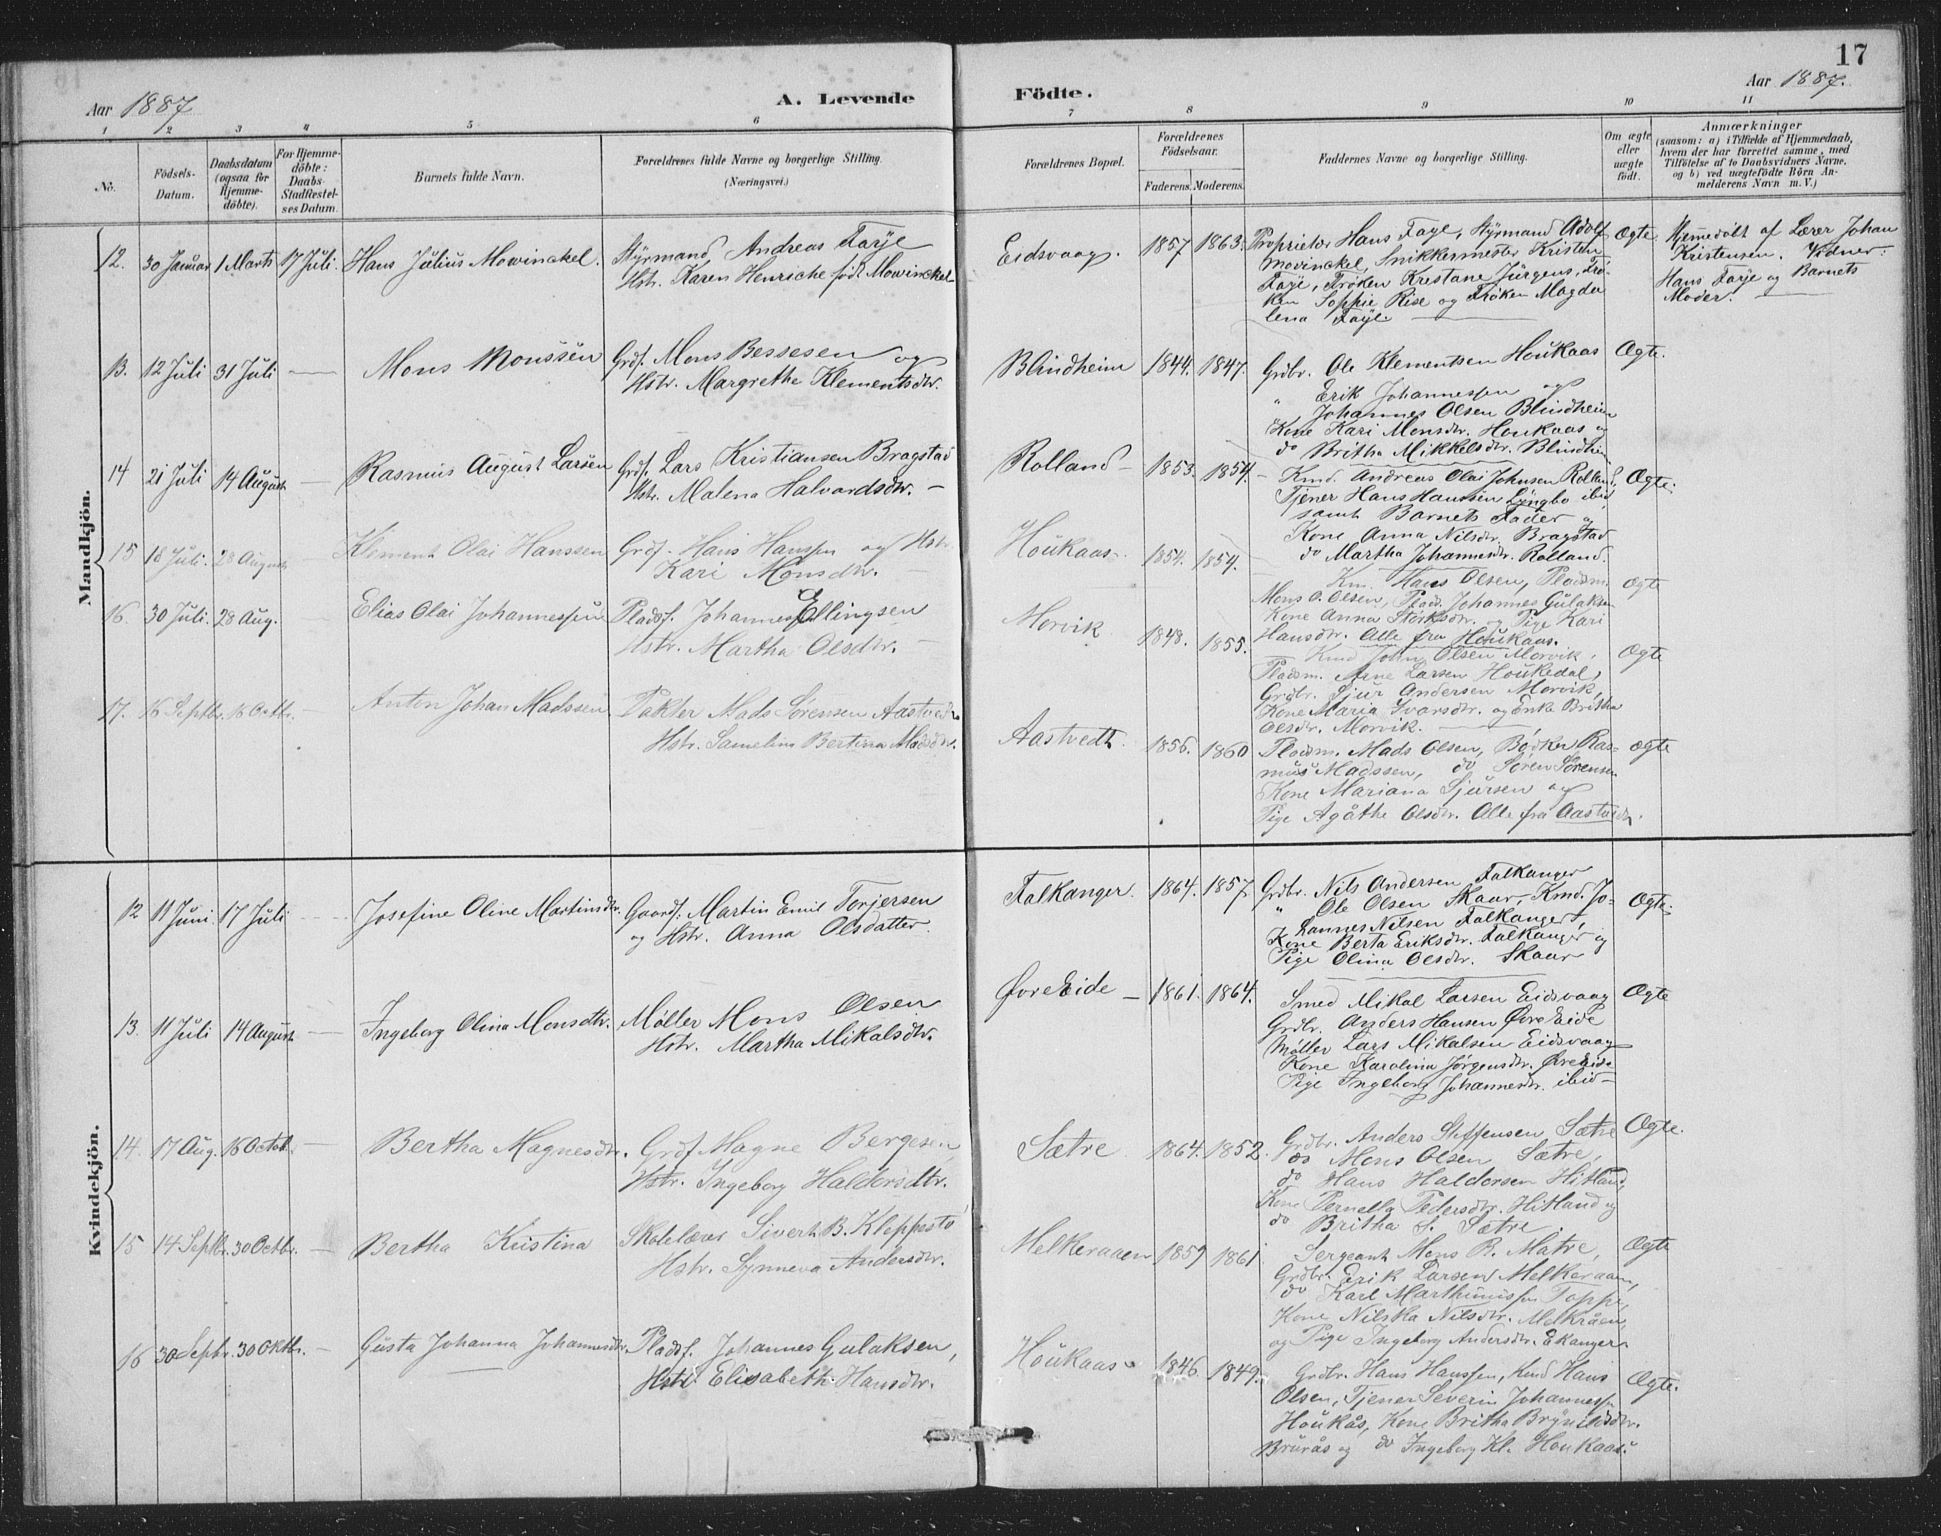 17
Aar 1887. A. Levende Födte. Aar 1887.
1 2 3 4 5 6 7 8 9 10 11
No.
Födsels-Datum.
Daabsdatum (ogsaa for Hjemmedöbte).
For Hjemmedöbte: Daabs-Stadfæstelses Datum.
Barnets fulde Navn.
Forældrenes fulde Navne og borgerlige Stilling. (Næringsvei.)
Forældrenes Bopæl.
Forældrenes Födselsaar.
Faderens. Moderens.
Faddernes Navne og borgerlige Stilling.
Om ægte eller uægte födt.
Anmærkninger
(saasom: a) i Tilfælde af Hjemmedaab,
hvem der har forrettet samme, med
Tilföielse af to Daabsvidners Navne,
og b) ved uægtefödte Börn Anmelderens Navn m. V.)
Mandkjön.
12. 30 Januar 1 Marts 17 Juli. Hans Julius Mowinckel. Styrmand, Andreas Faye
Hstr. Karen Henriche født Mowinckel
Eidsvaag. 1857 1863. Proprietær Hans Faye, Styrmand Adolf
Movinckel, Snikkermester Kristen
Faye, Frøken Krestane Jürgens, Frø-
ken Sophie Rise og Frøken Magda
lena Faye.
Ægte. Hjemmedöbt af Lærer Johan
Kristensen. Vidner:
Hans Faye og Barnets
Moder.
13. 12 Juli 31 Juli — Mons Monssen Grdf. Mons Bessesen og
Hstr. Margretha Klementsdtr.
Blindheim 1844. 1847. Grdbr. Ole Klementsen Houkaas Ægte.
" Erik Johannessen og
Johannes Olsen Blindheim
Kone Kari Monsdtr. Houkaas og
do Britha Mikkelsdtr. Blindheim
14 21 Juli 14 August — Rasmus August Larsen Grdf. Lars Kristiansen Bragstad
Hstr. Malena Halvardsdtr. —
Rolland — 1853. 1854. — Kmd. Andreas Olai Johnsen Rolland, Ægte.
Tjener Hans Hansen Lyngbo ibid
samt Barnets Fader og
Kone Anna Nilsdtr. Bragstad
do Martha Johannesdtr. Rolland.
15 18 Juli. 28 August — Klement Olai Hanssen Grdf. Hans Hanssen og Hstr.
Kari Monsdtr. —
Houkaas. 1854. 1854. Km. Hans Olsen, Pladsm. Ægte
Mons O. Olsen, Plads. Johannes Gulaksen
Kone Anna Størksdtr. og Pige Kari
Hansdtr. Alle fra Houkaas.
16. 30 Juli. 28 Aug. — Elias Olai Johannessen Pladsf. Johannes Ellingsen
Hstr. Martha Olsdtr. —
Morvik 1848. 1855. Kmd John Olsen Morvik, Ægte
Pladsm. Arne Larsen Houkedal,
Grdbr. Sjur Andersen Morvik,
Kone Maria Ivarsdtr. og Enke Britha
Olsdr. Morvik.
17. 16 Septbr. 16 Octbr. — Anton Johan Madssen Pakter Mads Sørensen Aastvedt
Hstr. Sameline Bertina Madsdtr.
Aastvedt. 1856. 1860 Pladsm. Mads Olsen, Bødker Ras- ægte
mus Madssen, do Søren Sørensen
Kone Mariana Sjursen og
Pige Agåthe Olsdtr. Alle fra Aastvedt.
Kvindekjön.
12 11 Juni 17 Juli — Josefine Oline Martinsdtr. Gaardf. Martin Emil Torjersen
og Hstr. Anna Olsdatter.
Falkanger. 1864. 1857. Grdbr. Nils Andersen Falkanger Ægte.
" Ole Olsen Skaar, Kmd. Jo-
hannes Nilsen Falkanger,
Kone Berta Eriksdtr. Falkanger og
Pige Olina Olsdtr. Skaar
13. 11 Juli 14 August — Ingeborg Olina Monsdtr. Møller Mons Olsen
Hstr. Martha Mikalsdtr.
Øvre Eide — 1861. 1864. Smed Mikal Larsen Eidsvaag Ægte
Grdbr. Anders Hansen Øvre Eide
Møller Lars Mikalsen Eidsvaag
Kone Karolina Jørgensdtr. Øvre Eide
Pige Ingeborg Johannesdtr. ibid—
14. 17 Aug. 16 Octob. — Bertha Magnesdtr. Grdf Magne Bergesen
Hstr. Ingeborg Haldorsdtr.
Sætre 1864. 1852. Grdbr. Anders Steffensen Sætre Ægte.
do Mons Olsen Sætre,
do Hans Haldorsen Hitland,
Kone Pernella Pedersdtr. Hitland og
do Britha J. Sætre.
15 14 Septbr. 30 Octbr. — Bertha Kristina Skolelærer Sivert B. Kleppestø
Hstr. Synneva Andersdtr.
Melkeraaen 1859 1861. Sergeant Mons R. Matre, Ægte
Grdbr. Erik Larsen Melkeraaen,
do Karl Marthinussen Toppe,
Kone Nilska Nilsdtr. Melkråen,
og Pige Ingeborg Andersdtr. Ekanger.
16 30 Septbr. 30 Oktbr. — Gusta Johanna Johannesdtr. Pladsf. Johannes Gulaksen,
Hstr. Elisabeth Hansdtr.
Houkaas. 1846 1849. Grdbr. Hans Hanssen, Kmd Hans Ægte.
Olsen, Tjener Severin Johannessen
Houkås, Kone Britha Brynildsdtr.
Brurås og do Ingeborg Kl. Houkaas.